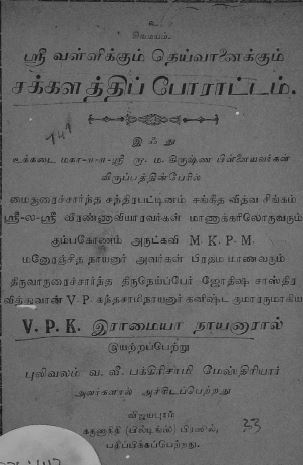 உ
சிவமயம்.
ஸ்ரீ வள்ளிக்கும் தெய்வானைக்கும்
சக்களத்திப் போராட்டம்.
747
இஃது
உக்கடை மகா-ா-ா-ஸ்ரீ ரு. ம. கிருஷ்ண பிள்ளையவர்கள்
விருப்பத்தின்பேரில்
மைதுரைச்சார்ந்த சந்திரபட்டினம் சங்கீத வித்வ சிங்கம்
ஸ்ரீ-ல-ஸ்ரீ வீரண்ணாவியாரவர்கள் மாணாக்கரிலொருவரும்
கும்பகோணம் அருட்கவி M. K. P. M.
மனோரஞ்சித நாயனார் அவர்கள் பிரதம மாணவரும்
திருவாரூரைச்சார்ந்த திருநெய்ப்பேர் ஜோதிஷ சாஸ்திர
வித்துவான் V. P. கந்தசாமிநாயனார் கனிஷ்ட குமாரருமாகிய
V. P. K. இராமையா நாயனாரால்
இயற்றப்பெற்று
புலிவலம் வ. வீ. பக்கிரிசாமி மேஸ்திரியார்
அவர்களால் அச்சிடப்பெற்றது
விஜயபுரம்
கருணாநிதி (பில்டிங்ஸ்) பிரஸில்,
பதிப்பிக்கப்பெற்றது.
33